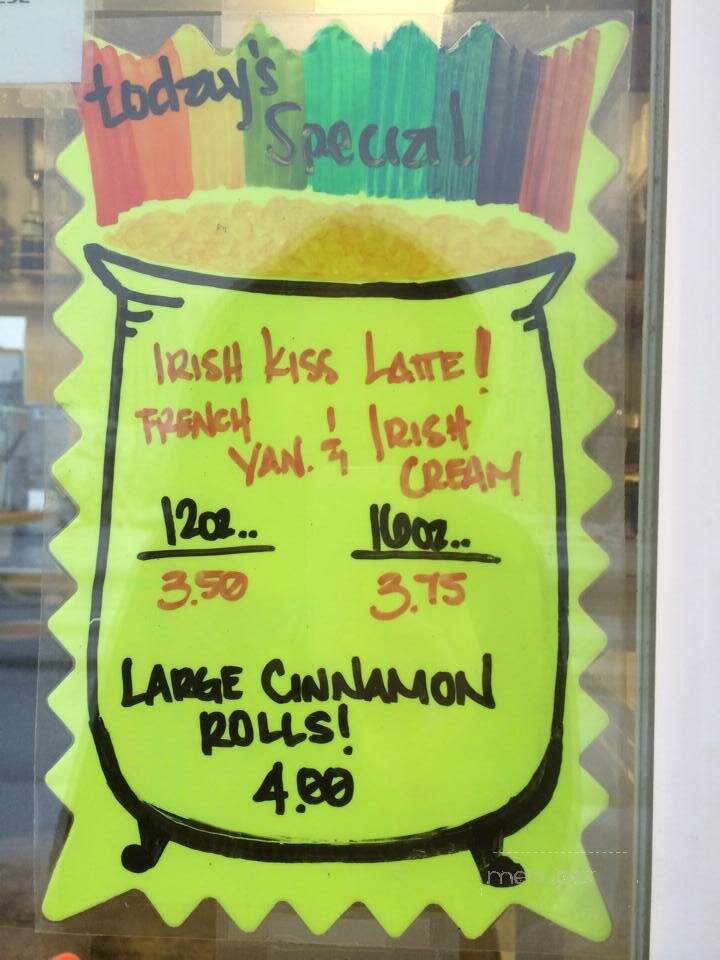 today's
Special
IRISH KISS LATTE!
FRENCH VAN. & IRISH CREAM
12oz.. 16oz..
3.50 3.75
LARGE CINNAMON
ROLLS!
4.00